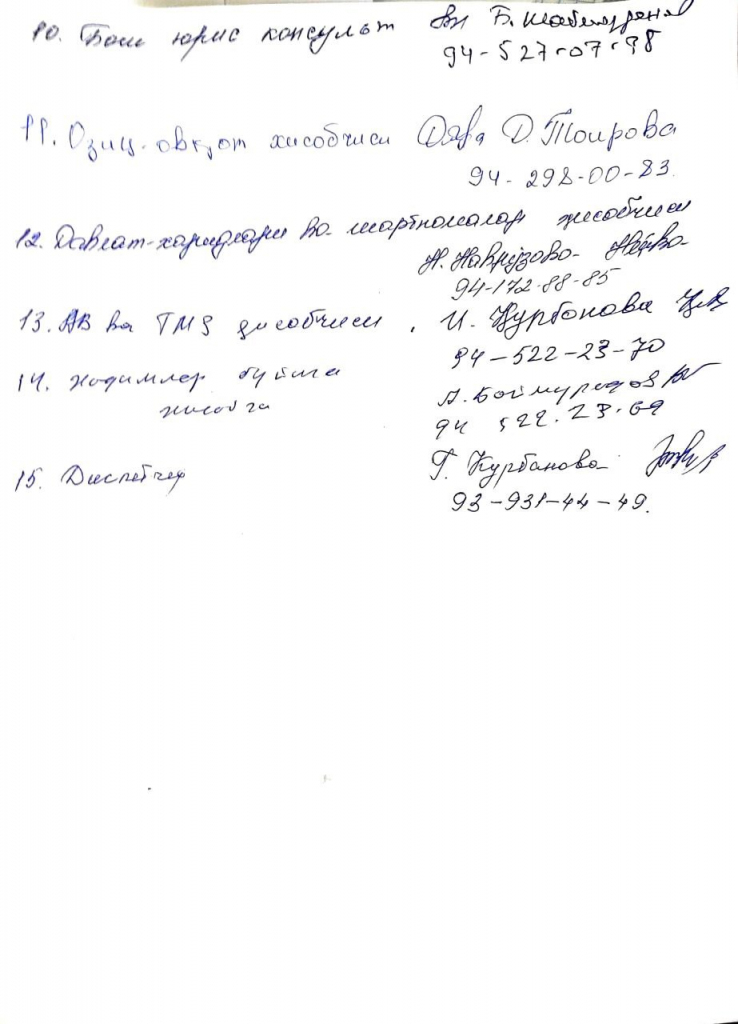 10. Бош юрис консульт Б. Шабмуродов
94-527-07-98
11. Озиқ-овқат хисобчиси Д. Тоирова
94-298-00-83.
12. Давлат-харидлари ва шартномалар хисобчиси
Н. Наврўзова
94-172-88-85
13. АВ ва ТМЗ ҳисобчиси. И. Қурбонова
94-522-23-70
14. ходимлар буйича А. Боймуродов
хисобчи
94 522.23.69
15. Диспетчер Г. Курбанова
93-931-44-49.